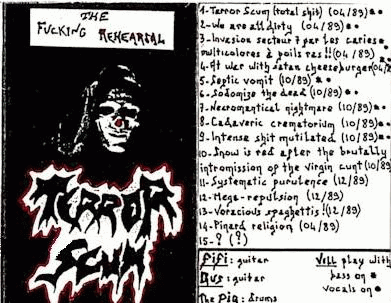 THE
FUCKING REHEARSAL
TERROR
SCUM
1-Terror Scum (total shit) (04/89)
2-We are all dirty (04/89)
3-Invasion secteur 7 par les caries
multicolores à poils ras!! (04/89)
4-At war with satan cheeseburger (04/
5-Septic vomit (10/89)
6-Sodomize the dead (10/89)
7-Necromantical nightmare (10/89)
8-Cadaveric crematorium (10/89)
9-Intense shit mutilated (10/89)
10-Snow is red after the brutally
intromission of the virgin cunt (10/89)
11-Systematic purulence (12/89)
12-Mega-repulsion (12/89)
13-Voracious spaghettis! (12/89)
14-Pinard religion (04/89)
15-? (?)
Fifi: guitar
Gus: guitar
The Pig: drums
Vill play with
bass on
vocals on